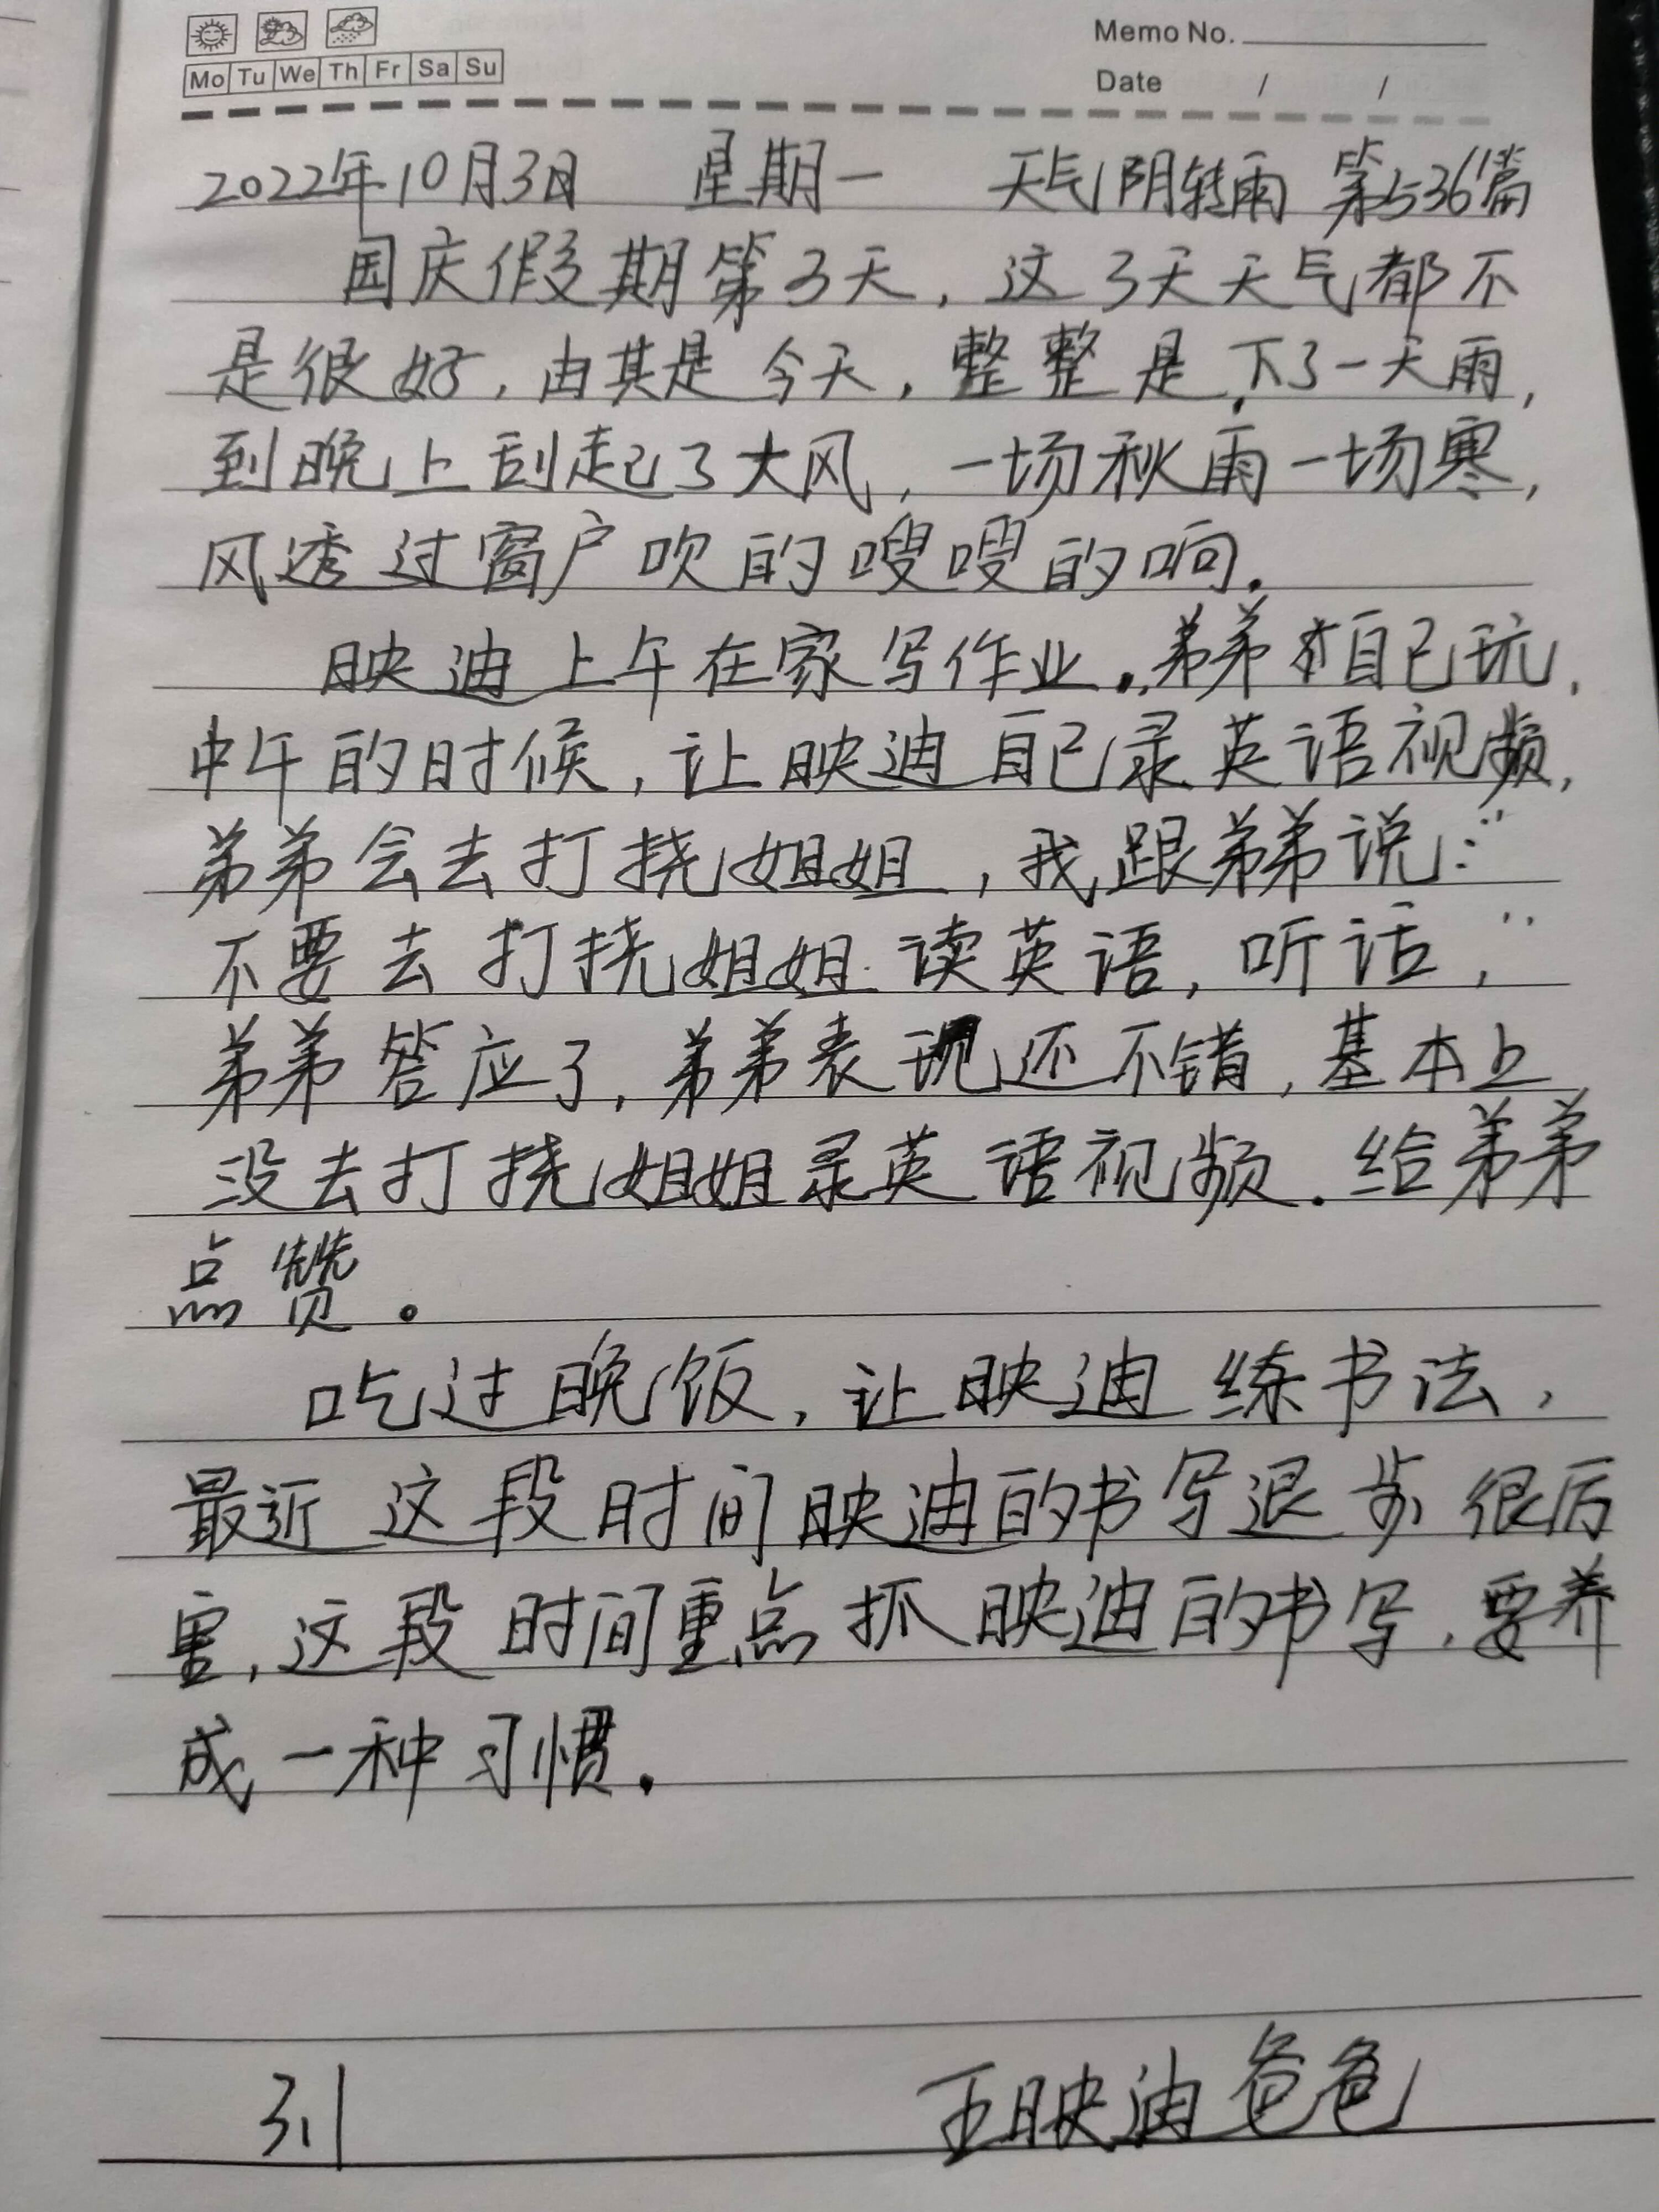 Memo No.
Mo Tu We Th Fr Sa Su
Date / /
2022年10月3日 星期一 天气阴转雨 第536篇
国庆假期第3天，这3天天气都不
是很好，由其是今天，整整是下了一天雨，
到晚上刮起了大风，一场秋雨一场寒，
风透过窗户吹的嗖嗖的响.
映迪上午在家写作业.弟弟自己玩，
中午的时候，让映迪自己录英语视频，
弟弟会去打挠姐姐，我跟弟弟说："
不要去打挠姐姐读英语，听话，"
弟弟答应了，弟弟表现还不错，基本上
没去打挠姐姐录英语视频.给弟弟
点赞。
吃过晚饭，让映迪练书法，
最近这段时间映迪的书写退步很厉
害，这段时间重点抓映迪的书写，要养
成一种习惯.
31 王映迪爸爸